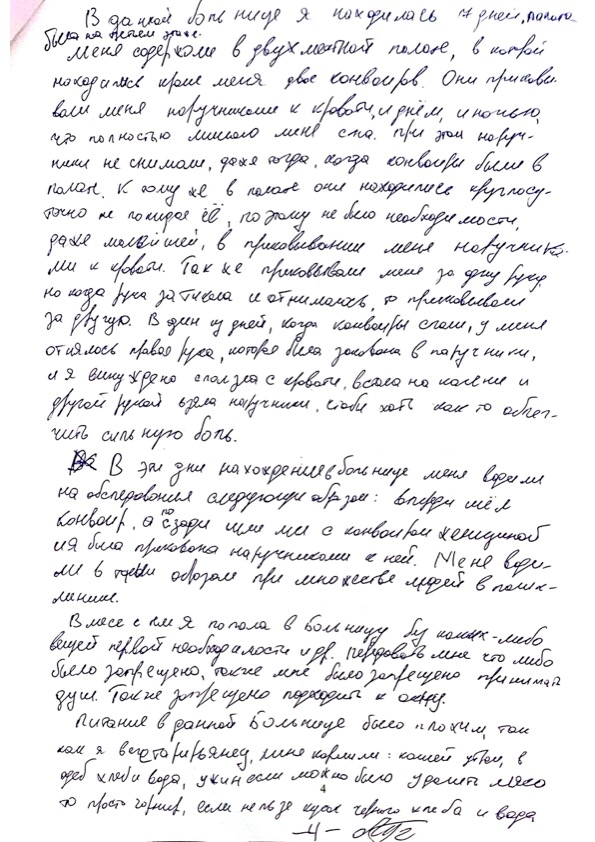 В данной больнице я находилась 7 дней, палата
была на третьем этаже.
Меня содержали в двухместной палате, в которой
находились кроме меня двое конвоиров. Они приковы-
вали меня наручниками к кровати, и днём, и ночью,
что полностью лишало меня сна. При этом наруч-
ники не снимали, даже тогда, когда конвоиры были в
палате. К тому же в палате они находились круглосу-
точно не покидая её, поэтому не было необходимости,
даже малейшей, в приковывании меня наручника-
ми к кровати. Так же приковывали меня за одну руку,
но когда рука затекала и отнималась, то приковывали
за другую. В один из дней, когда конвоиры спали, у меня
отнялась правая рука, которая была закована в наручники,
и я вынуждено сползла с кровати, встала на колени и
другой рукой взяла наручники, чтобы хоть как то облег-
чить сильную боль.
В эти дни нахождения в больнице меня водили
на обследования следующим образом: впереди шёл
конвоир, а позади шли мы с конвоиром женщиной
и я была прикована наручниками к ней. Меня води-
ли в таком образом при множестве людей в полик-
линике.
Вместе с тем я попала в больницу без каких-либо
вещей первой необходимости и др. Передавать мне что либо
было запрещено, также мне было запрещено принимать
душ. Также запрещено подходить к окну.
Питание в данной больнице было плохим, так
как я вегетарианец, меня кормили: кашей утром, в
обед хлеб и вода, ужин если можно было удалить мясо
то просто гарнир, если нельзя кусок черного хлеба и вода
- 4 -